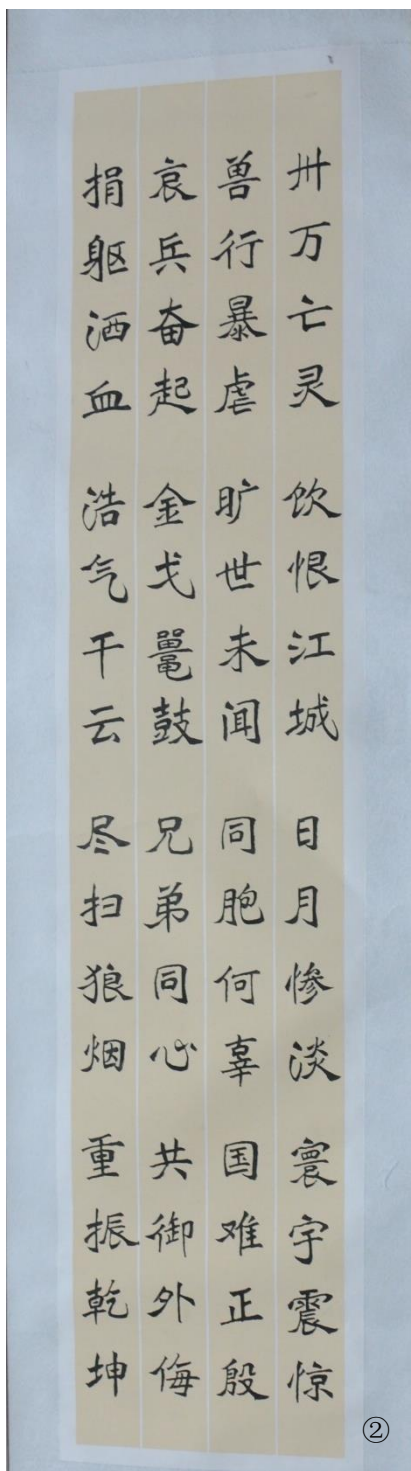 卅万亡灵 饮恨江城 日月惨淡 寰宇震惊
兽行暴虐 旷世未闻 同胞何辜 国难正殷
哀兵奋起 金戈鼍鼓 兄弟同心 共御外侮
捐躯洒血 浩气干云 尽扫狼烟 重振乾坤
②